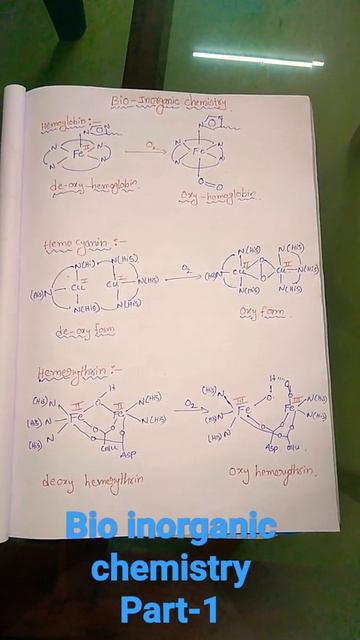 Bio-Inorganic chemistry
Hemoglobin :-
N
N N
Fe II
N N
O₂
N
N N
Fe
N N
O=O
de-oxy-hemoglobin.
Oxy-hemoglobin.
Hemocyanin :-
N(His) N(His)
(His)N Cu I Cu I N(His)
N(His) N(His)
O₂
N(His) N(His)
(His)N Cu II O O Cu II N(His)
N(His) N(His)
de-oxy form
Oxy form
Hemerythrin :-
H
(His)N O
II II
(His)N Fe Fe N(His)
N(His)
(His)N
Glu
Asp
O₂
H
(His)N O
III III
Fe Fe N(His)
(His)N N(His)
(His)N
Asp Glu
deoxy hemerythrin
Oxy hemerythrin.
Bio inorganic
chemistry
Part-1